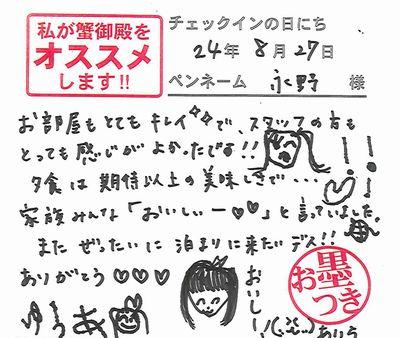 私が蟹御殿を
オススメ
します!!
チェックインの日にち
24年 8月 27日
ペンネーム 永野 様
お部屋もとてもキレイで、スタッフの方も
とっても感じがよかったでする!!
夕食は期待以上の美味しさで・・・!!
家族みんな「おいしいー♡♡」と言っていました。
また ぜったいに 泊まりに来たいデス!!
ありがとう♡♡♡
おいしー
ゆうあ
お墨つき